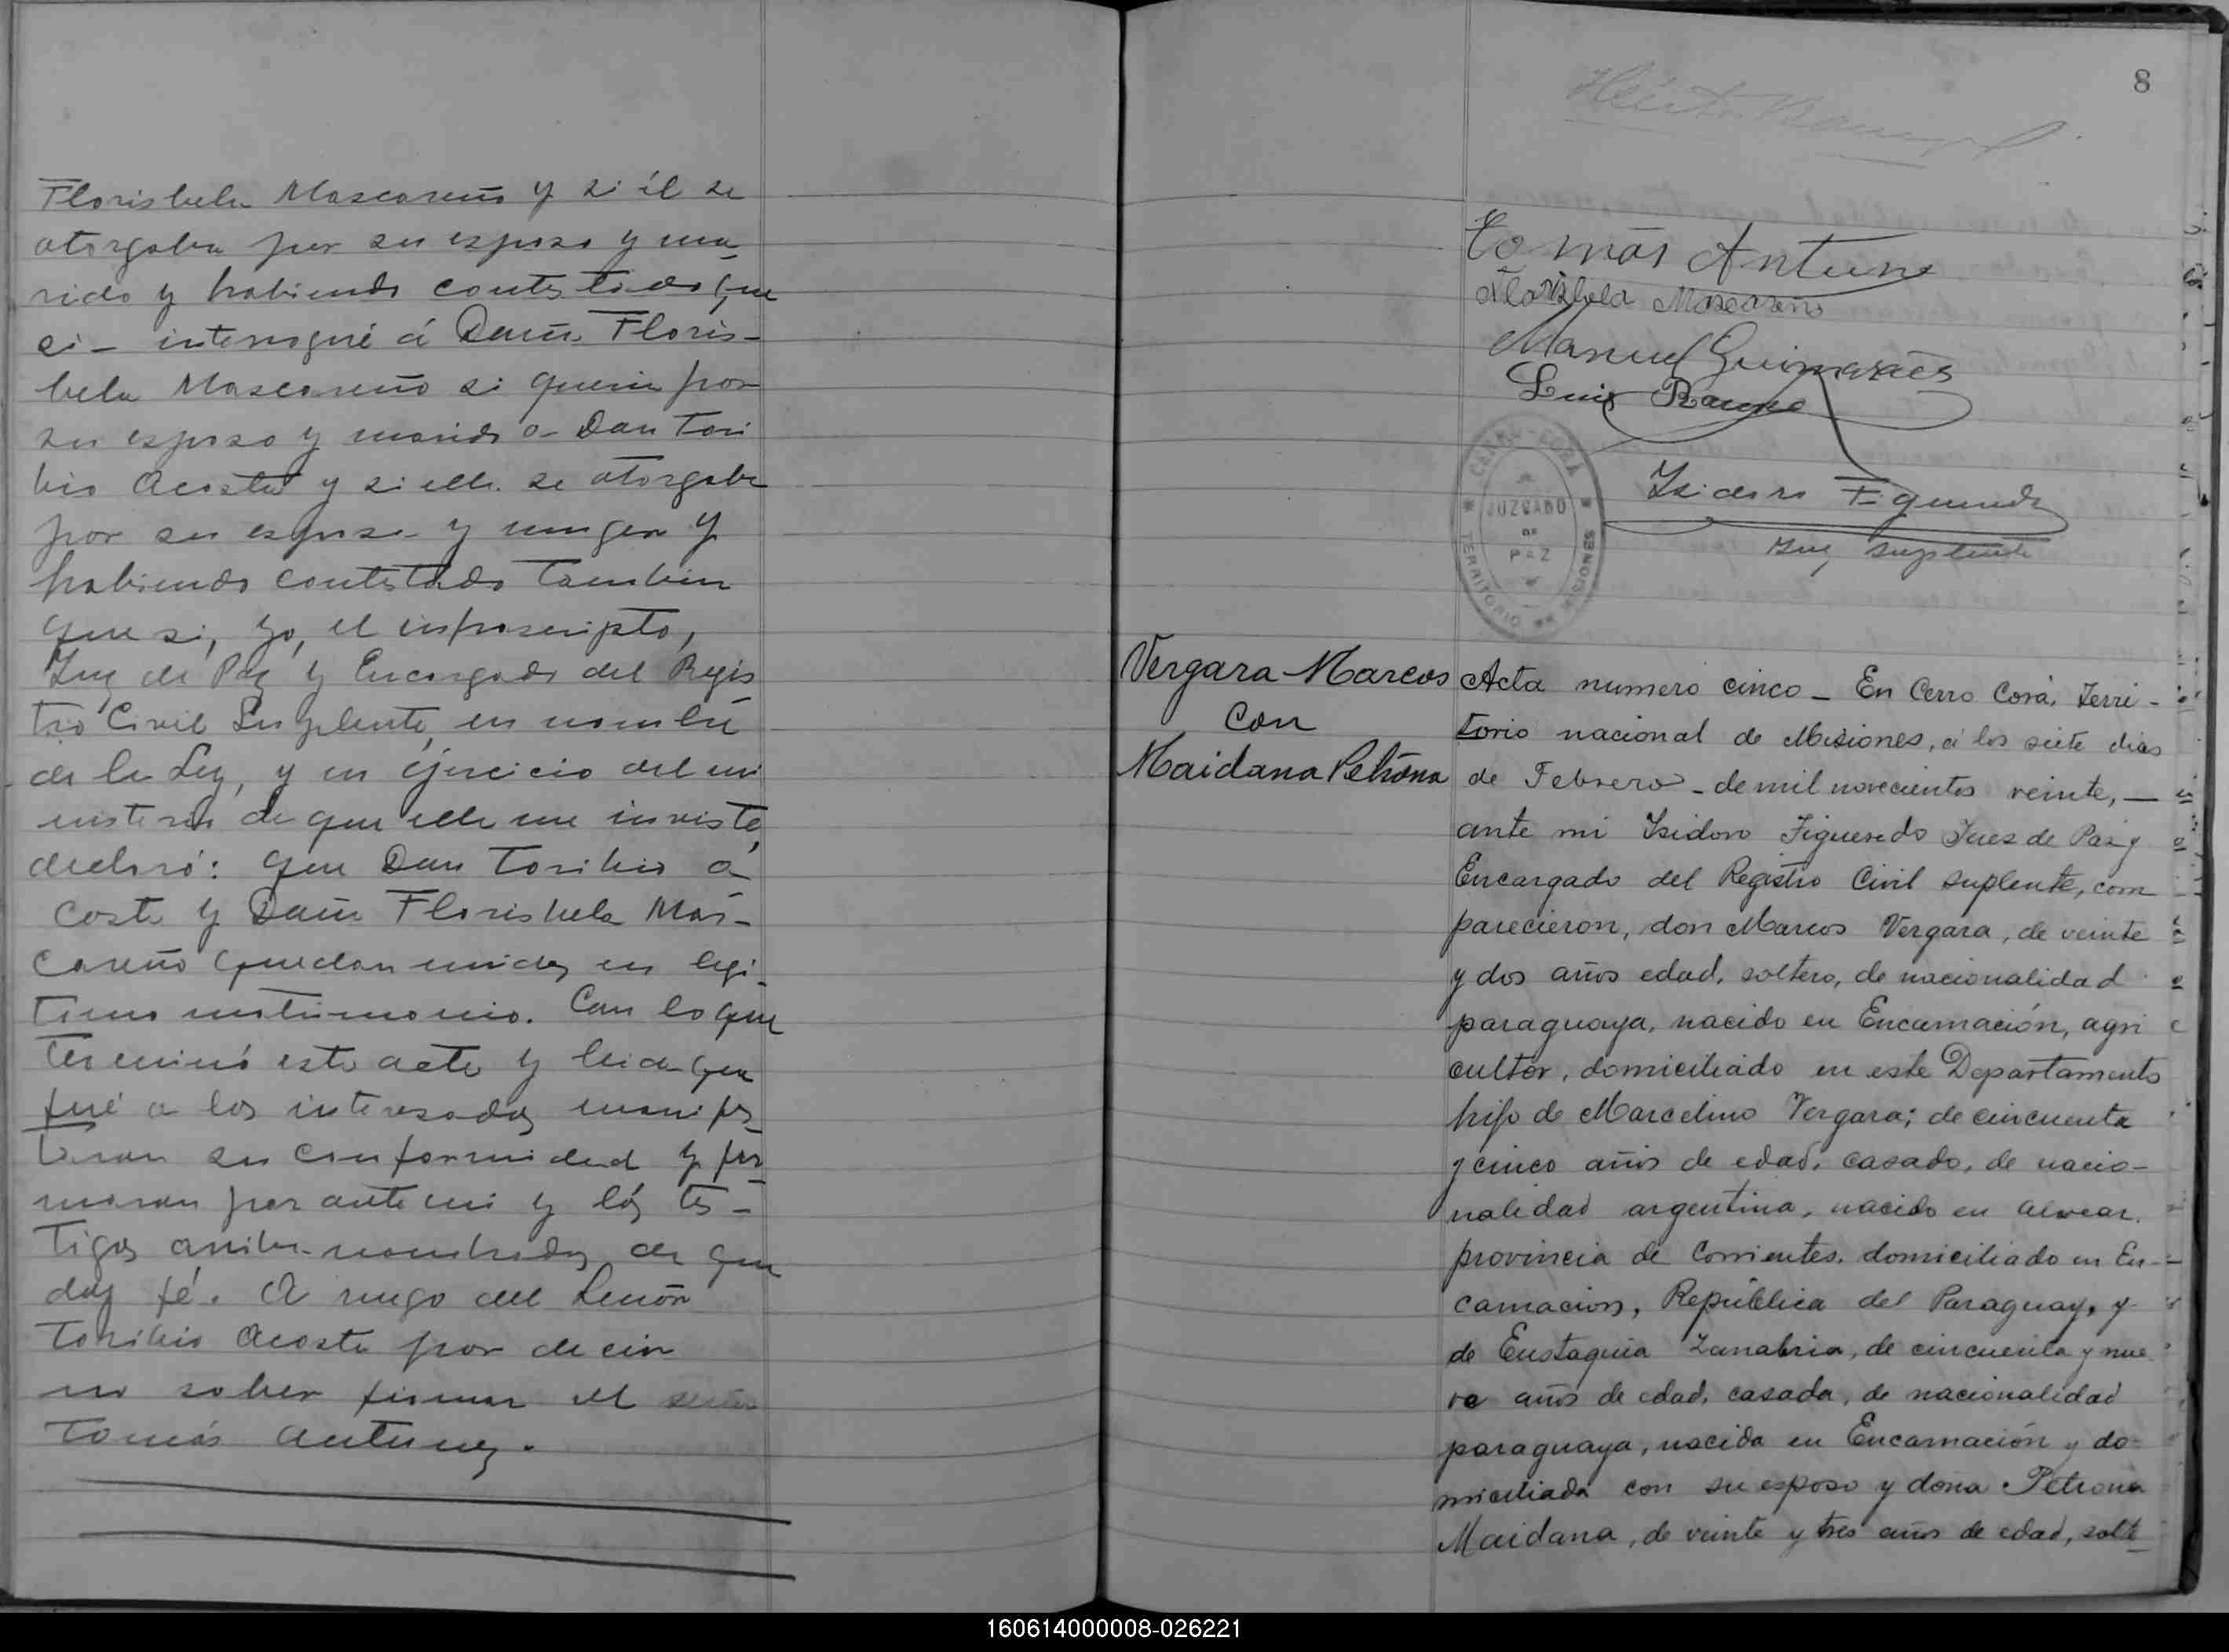 Florisbela Mascareño y si él se
otorgaba por su esposo y ma
rido y habiendo contestado que
si - interrogué á Doña Floris-
bela Mascareño si queria por
su esposo y marido a Don Tori
bio Acosta y si ella se otorgaba
por su esposa y muger y
habiendo contestado tambien
que si, yo, el infrascripto,
Juez de Paz y Encargado del Regis
tro Civil Suplente, en nombre
de la Ley, y en ejercicio del mi
nisterio de que ella me inviste,
declaró: que Don Toribio A
costa y Doña Florisbela Mas-
careño quedan unidos en legi-
timo matrimonio. Con lo que
terminó esta acta y leida que
fué a los interesados manifes
taron su conformidad y fir
maron por ante mi y los tes-
tigos arriba nombrados de que
doy fé. A ruego del Señor
Toribio Acosta por decir
no saber firmar el señor
Tomás Antunez.
8
Tomás Antune
Florisbela Mascareño
Manuel Guimaraes
Luis
Isidoro Figueredo
Juez suplente
CERRO-CORÁ
JUZGADO
DE
PAZ
TERRITORIO MISIONES
Vergara Marcos
Con
Maidana Petrona
Acta numero cinco - En Cerro Corá, Terri-
torio nacional de Misiones, á los siete dias
de Febrero - de mil novecientos veinte, —
ante mi Isidoro Figueredo Juez de Paz y
Encargado del Registro Civil suplente, com
parecieron, don Marcos Vergara, de veinte
y dos años edad, soltero, de nacionalidad
paraguaya, nacido en Encarnación, agri
cultor, domiciliado en este Departamento
hijo de Marcelino Vergara; de cincuenta
y cinco años de edad, casado, de nacio-
nalidad argentina, nacido en Alvear.
provincia de Corrientes, domiciliado en En-
carnacion, República del Paraguay, y
de Eustaquia Zanabria, de cincuenta y nue
ve años de edad, casada, de nacionalidad
paraguaya, nacida en Encarnación y do-
miciliada con su esposo y doña Petrona
Maidana, de veinte y tres años de edad, solte
160614000008-026221